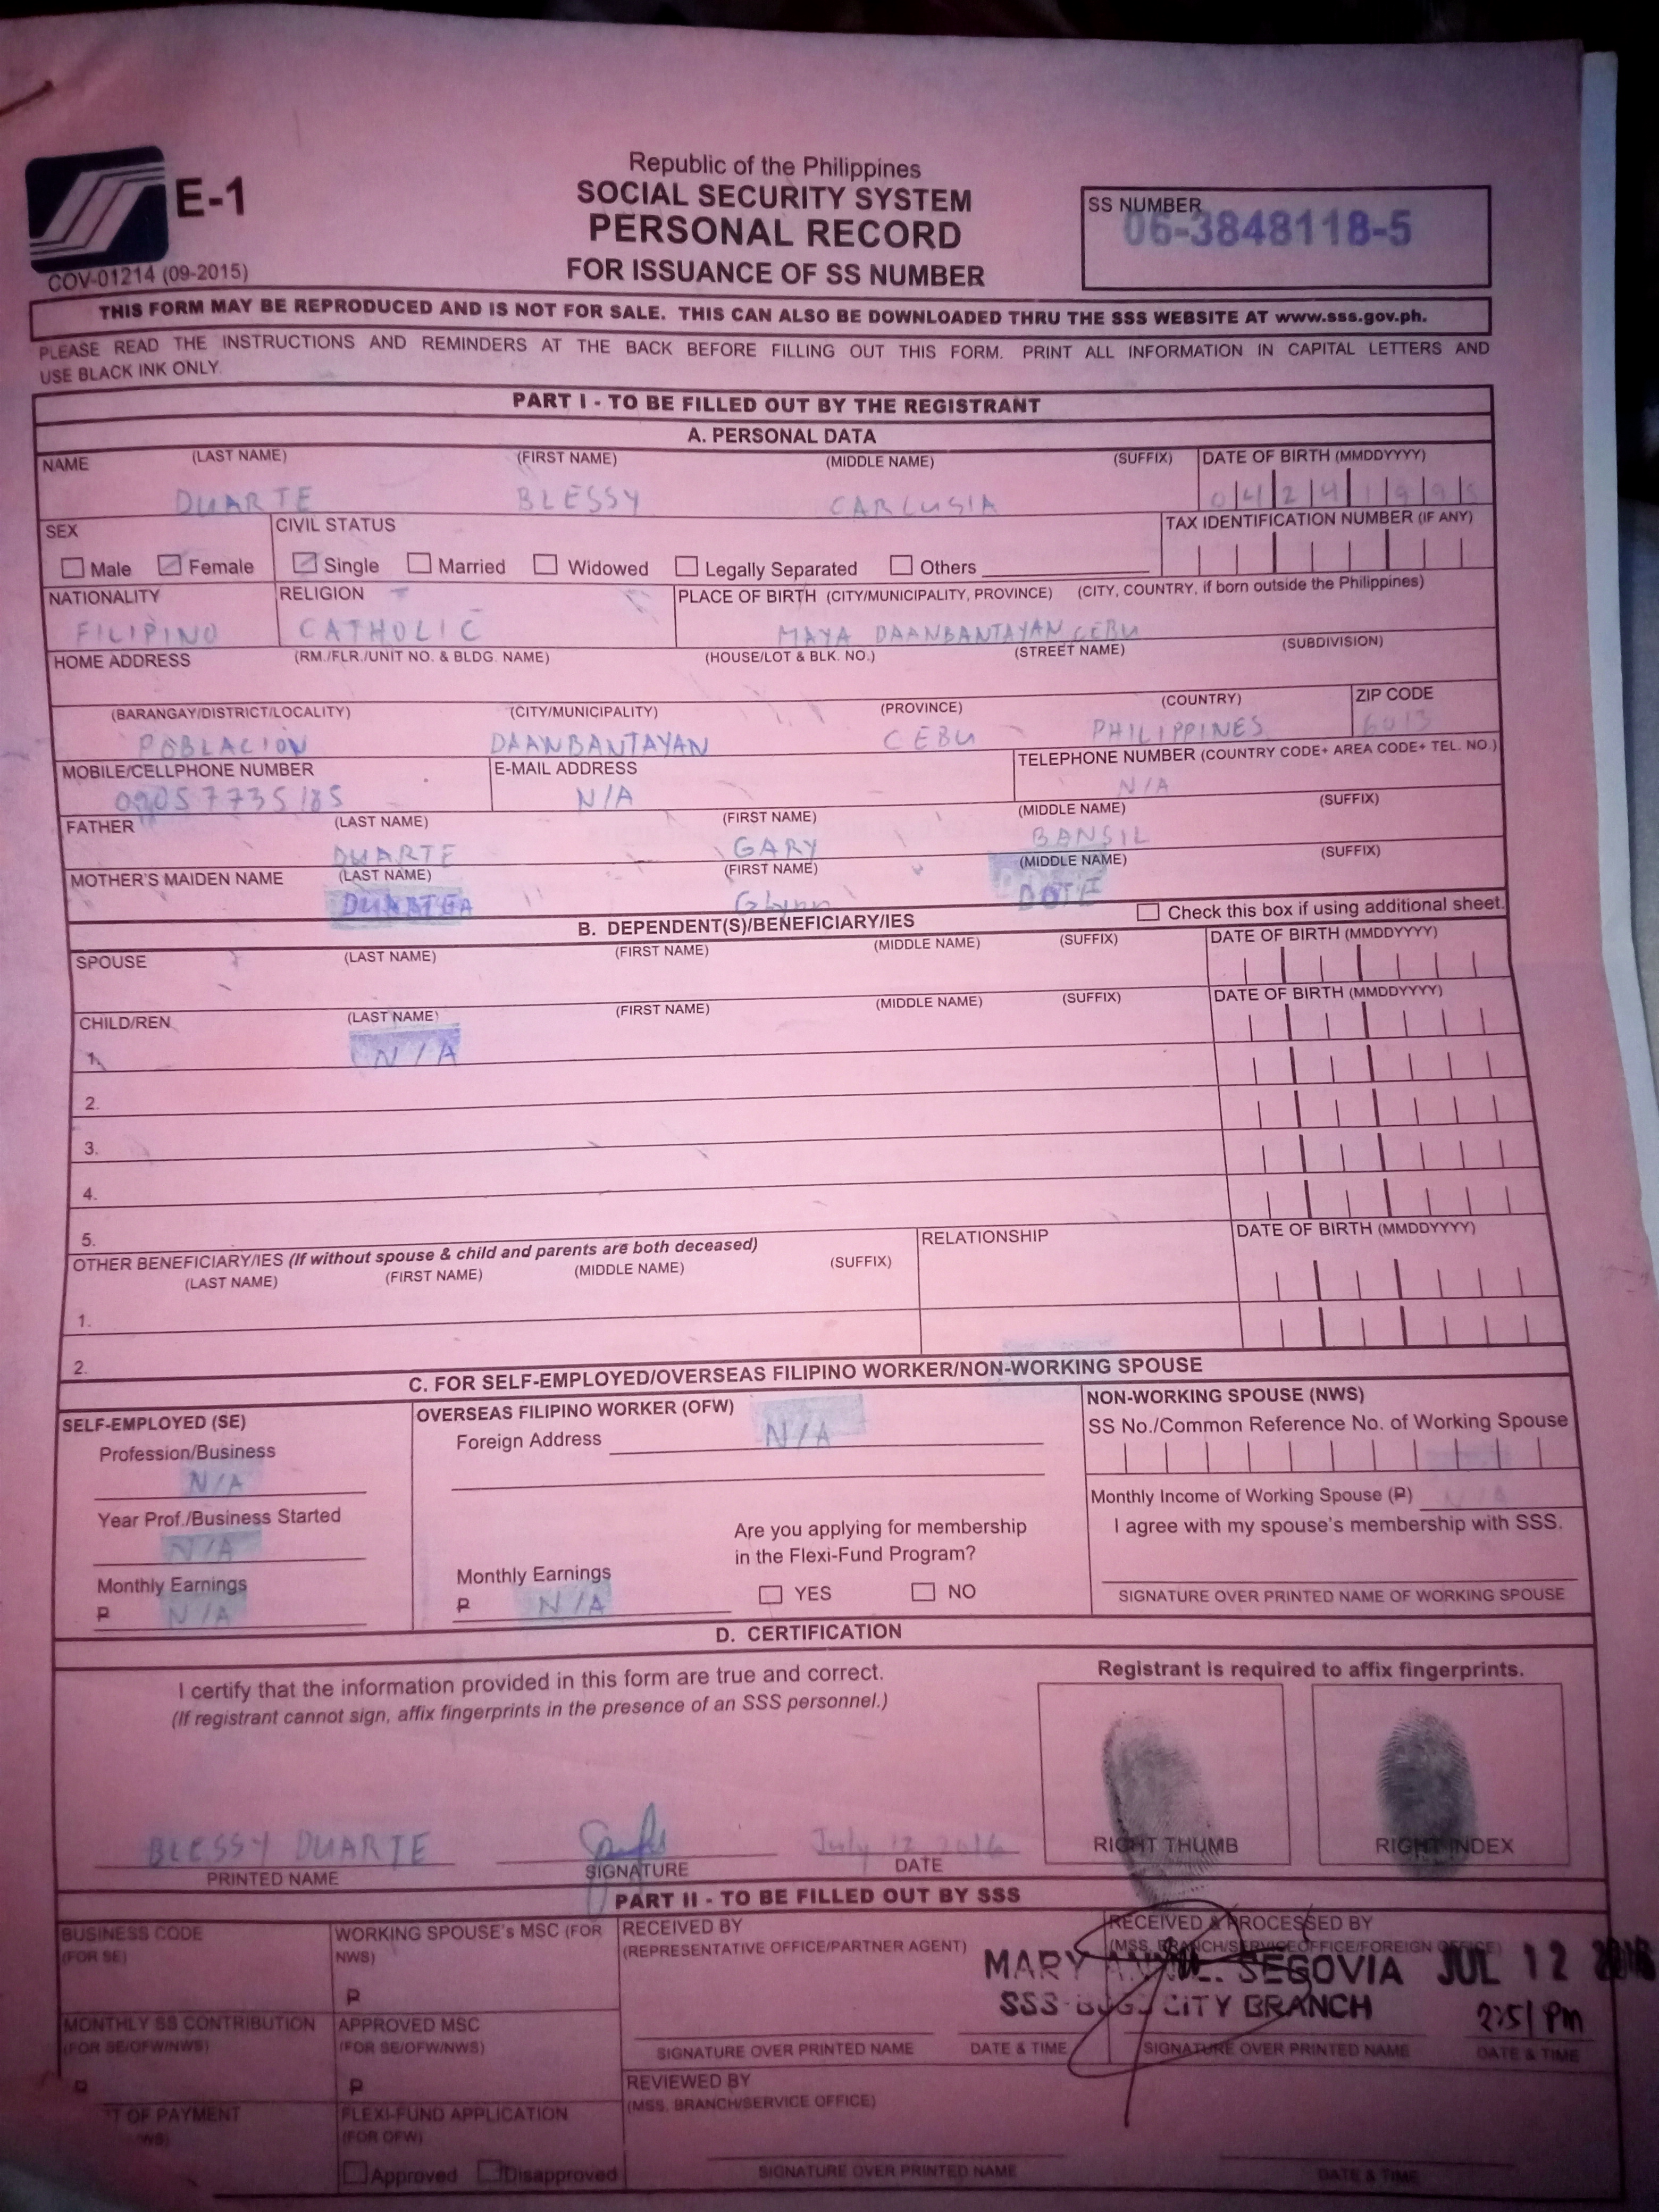 E-1
COV-01214 (09-2015)
Republic of the Philippines
SOCIAL SECURITY SYSTEM
PERSONAL RECORD
FOR ISSUANCE OF SS NUMBER
SS NUMBER
06-3848118-5
THIS FORM MAY BE REPRODUCED AND IS NOT FOR SALE. THIS CAN ALSO BE DOWNLOADED THRU THE SSS WEBSITE AT www.sss.gov.ph.
PLEASE READ THE INSTRUCTIONS AND REMINDERS AT THE BACK BEFORE FILLING OUT THIS FORM. PRINT ALL INFORMATION IN CAPITAL LETTERS AND
USE BLACK INK ONLY.
PART I - TO BE FILLED OUT BY THE REGISTRANT
A. PERSONAL DATA
NAME (LAST NAME) (FIRST NAME) (MIDDLE NAME) (SUFFIX) DATE OF BIRTH (MMDDYYYY)
DUARTE BLESSY CARLUSIA 0424199
SEX CIVIL STATUS TAX IDENTIFICATION NUMBER (IF ANY)
Male Female Single Married Widowed Legally Separated Others
NATIONALITY RELIGION PLACE OF BIRTH (CITY/MUNICIPALITY, PROVINCE) (CITY, COUNTRY, if born outside the Philippines)
FILIPINO CATHOLIC MAYA DAANBANTAYAN CEBU
HOME ADDRESS (RM./FLR./UNIT NO. & BLDG. NAME) (HOUSE/LOT & BLK. NO.) (STREET NAME) (SUBDIVISION)
(BARANGAY/DISTRICT/LOCALITY) (CITY/MUNICIPALITY) (PROVINCE) (COUNTRY) ZIP CODE
POBLACION DAANBANTAYAN CEBU PHILIPPINES 6013
MOBILE/CELLPHONE NUMBER E-MAIL ADDRESS TELEPHONE NUMBER (COUNTRY CODE+ AREA CODE+ TEL. NO.)
09057735185 N/A N/A
FATHER (LAST NAME) (FIRST NAME) (MIDDLE NAME) (SUFFIX)
DUARTE GARY BANSIL
MOTHER'S MAIDEN NAME (LAST NAME) (FIRST NAME) (MIDDLE NAME) (SUFFIX)
B. DEPENDENT(S)/BENEFICIARY/IES Check this box if using additional sheet.
SPOUSE (LAST NAME) (FIRST NAME) (MIDDLE NAME) (SUFFIX) DATE OF BIRTH (MMDDYYYY)
CHILD/REN (LAST NAME) (FIRST NAME) (MIDDLE NAME) (SUFFIX) DATE OF BIRTH (MMDDYYYY)
1. N/A
2.
3.
4.
5.
OTHER BENEFICIARY/IES (If without spouse & child and parents are both deceased) RELATIONSHIP DATE OF BIRTH (MMDDYYYY)
(LAST NAME) (FIRST NAME) (MIDDLE NAME) (SUFFIX)
1.
2.
C. FOR SELF-EMPLOYED/OVERSEAS FILIPINO WORKER/NON-WORKING SPOUSE
SELF-EMPLOYED (SE)
Profession/Business
N/A
Year Prof./Business Started
N/A
Monthly Earnings
₱ N/A
OVERSEAS FILIPINO WORKER (OFW)
Foreign Address N/A
Are you applying for membership
in the Flexi-Fund Program?
YES NO
Monthly Earnings
₱ N/A
NON-WORKING SPOUSE (NWS)
SS No./Common Reference No. of Working Spouse
Monthly Income of Working Spouse (₱) N/A
I agree with my spouse's membership with SSS.
SIGNATURE OVER PRINTED NAME OF WORKING SPOUSE
D. CERTIFICATION
I certify that the information provided in this form are true and correct.
(If registrant cannot sign, affix fingerprints in the presence of an SSS personnel.)
Registrant is required to affix fingerprints.
RIGHT THUMB RIGHT INDEX
BLESSY DUARTE July 12, 2016
PRINTED NAME SIGNATURE DATE
PART II - TO BE FILLED OUT BY SSS
BUSINESS CODE
(FOR SE)
WORKING SPOUSE's MSC (FOR
NWS)
₱
RECEIVED BY
(REPRESENTATIVE OFFICE/PARTNER AGENT)
RECEIVED & PROCESSED BY
(MSS, BRANCH/SERVICE OFFICE/FOREIGN OFFICE)
MARY SEGOVIA JUL 12
SSS CITY BRANCH
2:51 PM
SIGNATURE OVER PRINTED NAME DATE & TIME SIGNATURE OVER PRINTED NAME DATE & TIME
MONTHLY SS CONTRIBUTION
(FOR SE/OFW/NWS)
₱
APPROVED MSC
(FOR SE/OFW/NWS)
₱
REVIEWED BY
(MSS, BRANCH/SERVICE OFFICE)
OF PAYMENT
FLEXI-FUND APPLICATION
(FOR OFW)
Approved Disapproved
SIGNATURE OVER PRINTED NAME DATE & TIME